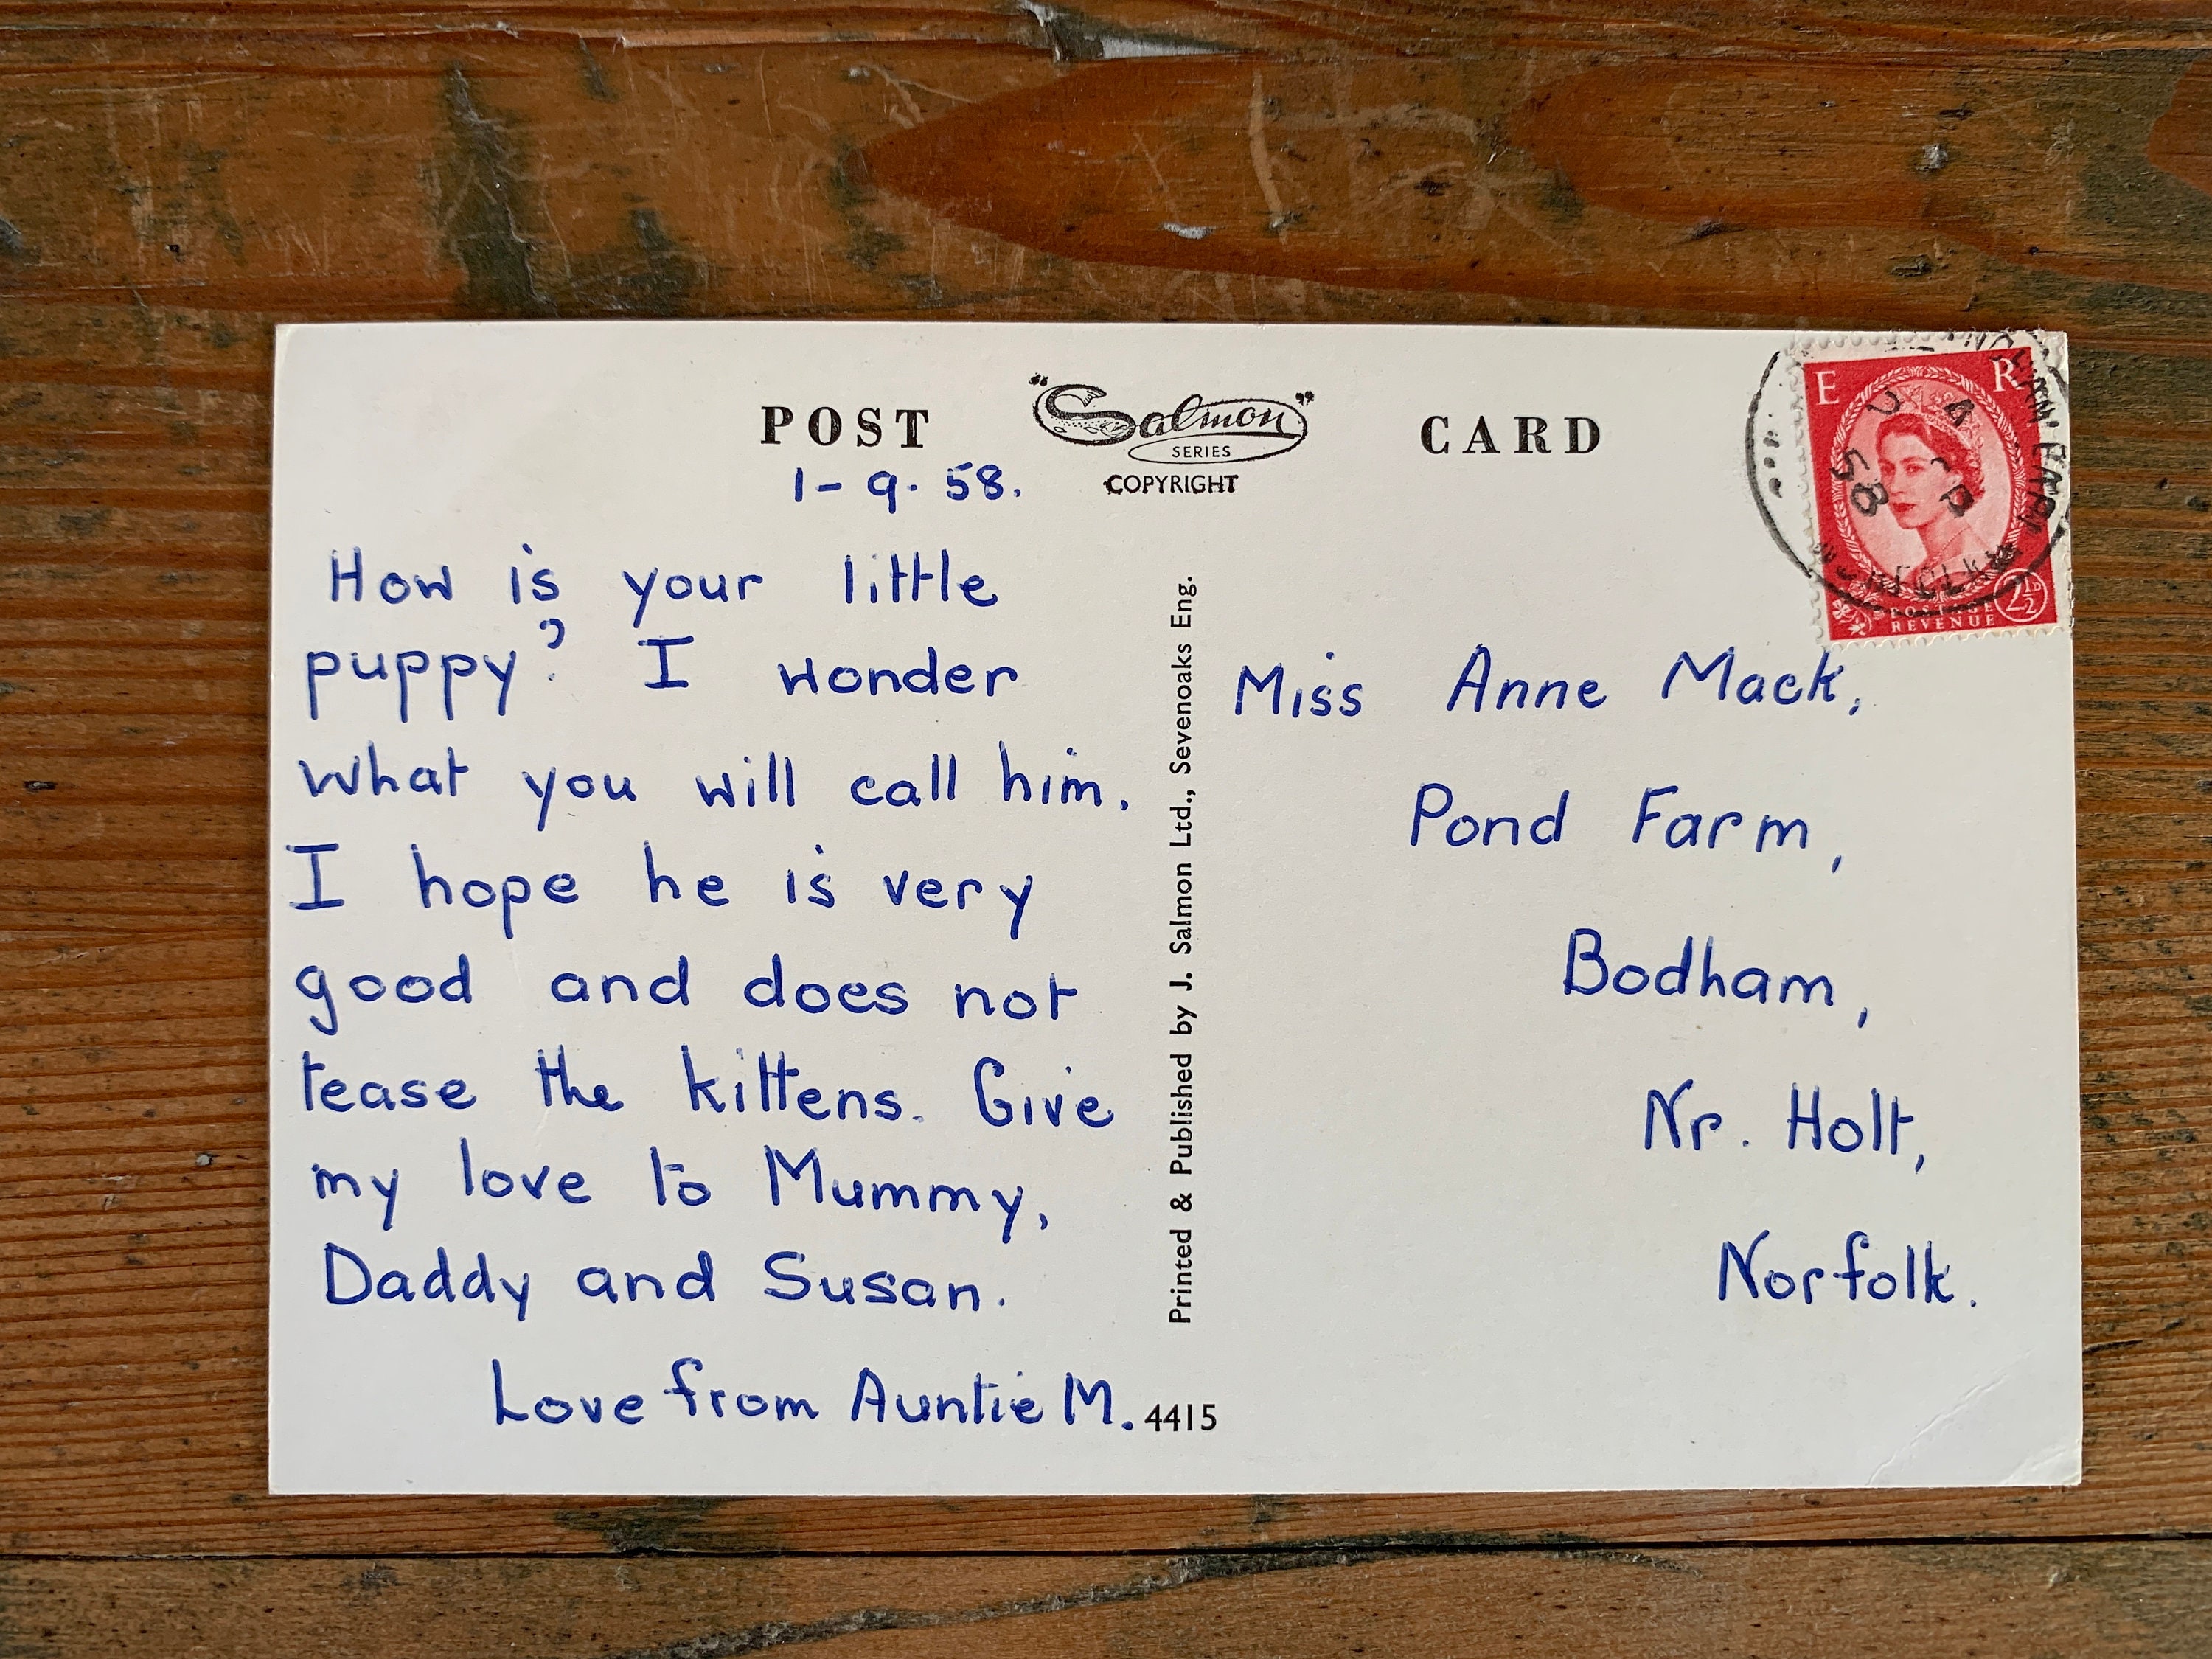 POST "Salmon" CARD
SERIES
COPYRIGHT
1-9.58.
How is your little
puppy? I wonder
what you will call him.
I hope he is very
good and does not
tease the kittens. Give
my love to Mummy,
Daddy and Susan.
Love from Auntie M.
4415
Printed & Published by J. Salmon Ltd., Sevenoaks Eng.
E R
58
POSTAGE
REVENUE
2½D
Miss Anne Mack,
Pond Farm,
Bodham,
Nr. Holt,
Norfolk.